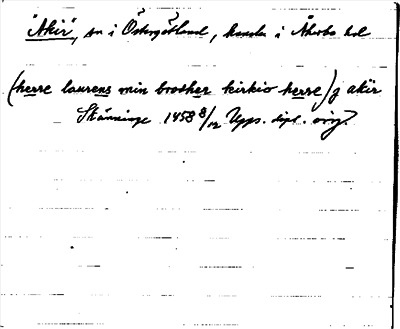 "Akir", sn i Östergötland, kanske i Åkerbo hd
(herre laurens min brodher kirkio herre) j akir
Skänninge 1458 8/12 Upps. dipl. orig.